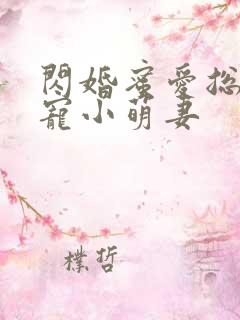 閃婚蜜愛総
寵小萌妻
樸哲